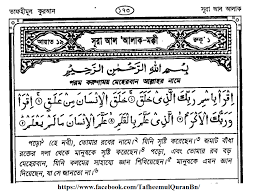 তাফহীমুল কুরআন ১৭৩ সূরা আল আলাক
আয়াত ১৯ সূরা আল 'আলাক-মক্কী রুকূ' ১
بِسْمِ اللهِ الرَّحْمٰنِ الرَّحِيْمِ
পরম করুণাময় মেহেরবান আল্লাহর নামে
اِقْرَاْ بِاسْمِ رَبِّكَ الَّذِىْ خَلَقَ ۚ خَلَقَ الْاِنْسَانَ مِنْ عَلَقٍ ۚ اِقْرَاْ
وَرَبُّكَ الْاَكْرَمُ ۙ الَّذِىْ عَلَّمَ بِالْقَلَمِ ۙ عَلَّمَ الْاِنْسَانَ مَالَمْ يَعْلَمْ ؕ
পড়ো (হে নবী), তোমার রবের নামে। যিনি সৃষ্টি করেছেন। জমাট বাঁধা
রক্তের দলা থেকে মানুষকে সৃষ্টি করেছেন। পড়ো, এবং তোমার রব বড়
মেহেরবান, যিনি কলমের সাহায্যে জ্ঞান শিখিয়েছেন। মানুষকে এমন জ্ঞান
দিয়েছেন, যা সে জানতো না।
https://www.facebook.com/TafheemulQuranBn/